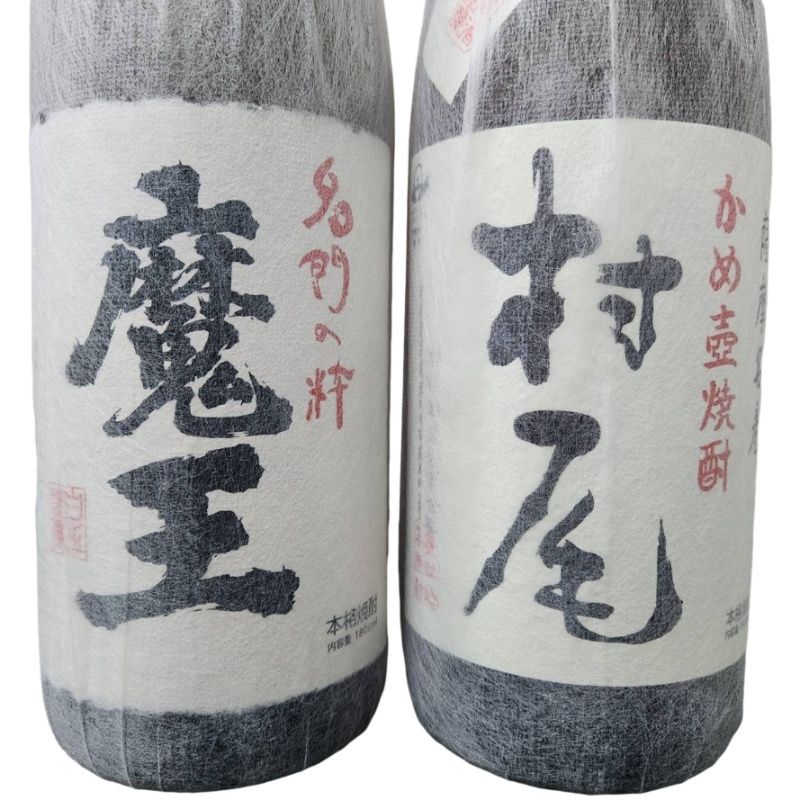 名門の粋
魔王
本格焼酎
内容量 1800ml
かめ壺焼酎
村尾
本格焼